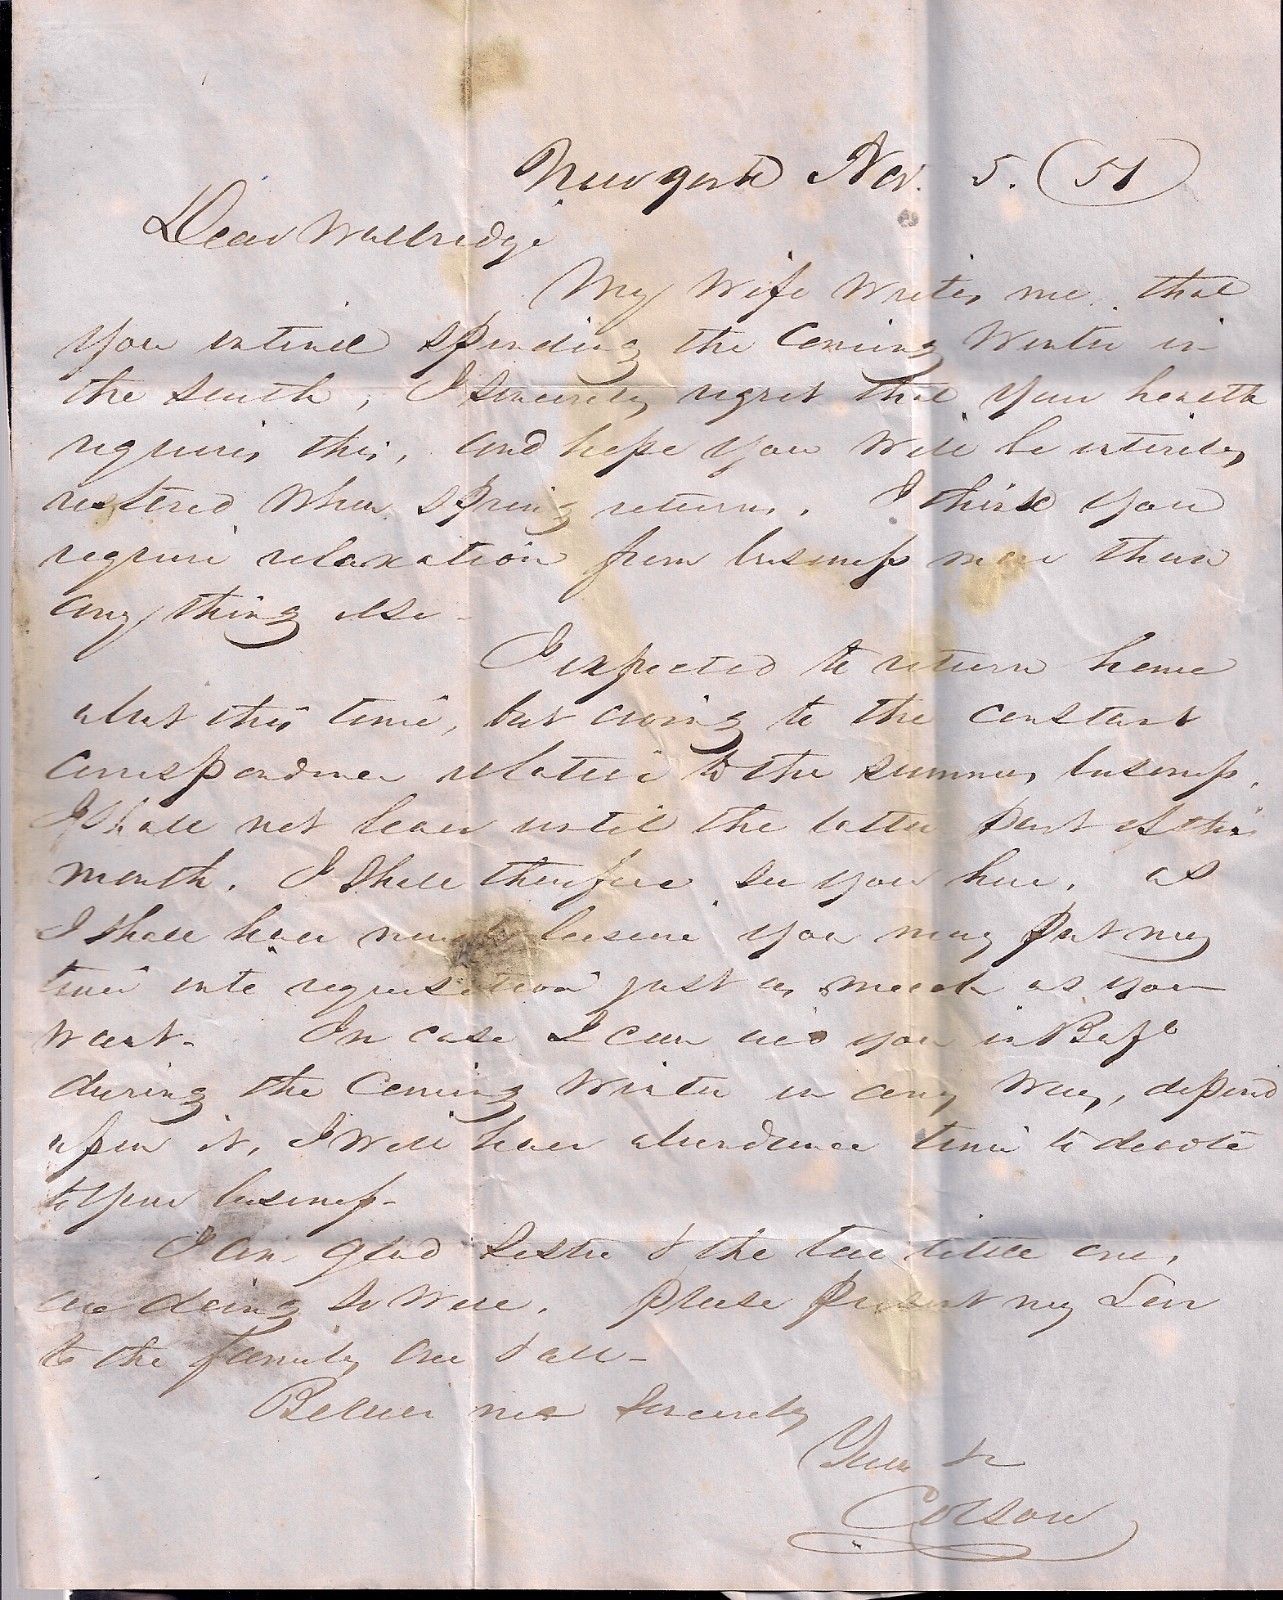 New york Nov. 5. (51
Dear Wallridge
My Wife writes me that
you intend spending the Coming Winter in
the South, I sincerely regret that your health
requires this, and hope you Will be entirely
restored When Spring returns. I think you
require relaxation from business more than
any thing else -
I expected to return home
about this time, but owing to the constant
correspondence relative to the summer business,
I shall not leave until the latter part of this
month. I Shall therefore see you here. as
I shall have much leisure you may put my
time into requisition just as much as you
want. In case I can aid you in Bufo
during the Coming Winter in any Way, depend
upon it, I Will have abundance time to devote
to your business -
I am glad Sister & the two little ones
are doing so Well. Please present my Love
to the family one & all -
Believe me Sincerely
Yours &c
Colson